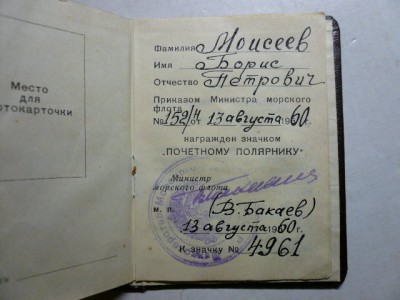 Место
для
фотокарточки
Фамилия Моисеев
Имя Борис
Отчество Петрович
Приказом Министра морского
флота
№ 152/н от 13 августа 1960.
награжден значком
„ПОЧЕТНОМУ ПОЛЯРНИКУ"
Министр
морского флота
м. п. (В. Бакаев)
13 августа 1960 г.
К значку № 4961